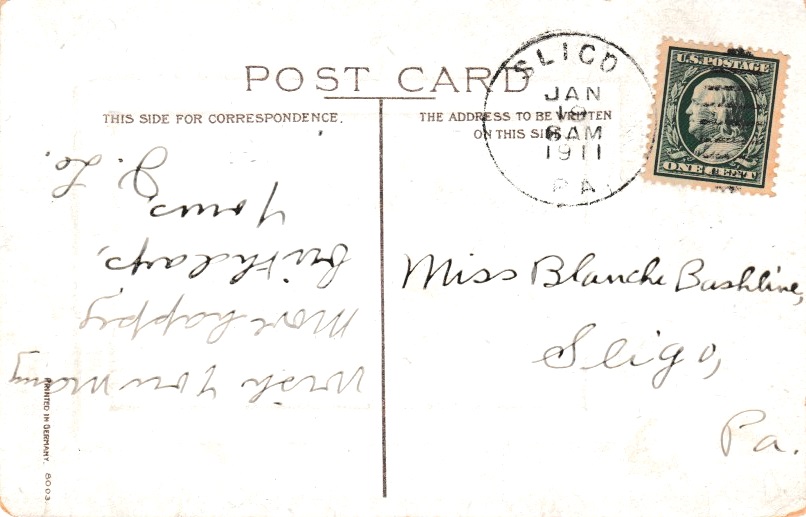 POST CARD
THIS SIDE FOR CORRESPONDENCE.
THE ADDRESS TO BE WRITTEN
ON THIS SIDE
SLIGO
JAN
6 AM
1911
PA
U.S. POSTAGE
ONE CENT
Miss Blanche Bashline,
Sligo,
Pa.
Wish You Many
More happy
birthdays,
Yours,
PRINTED IN GERMANY. 8003.